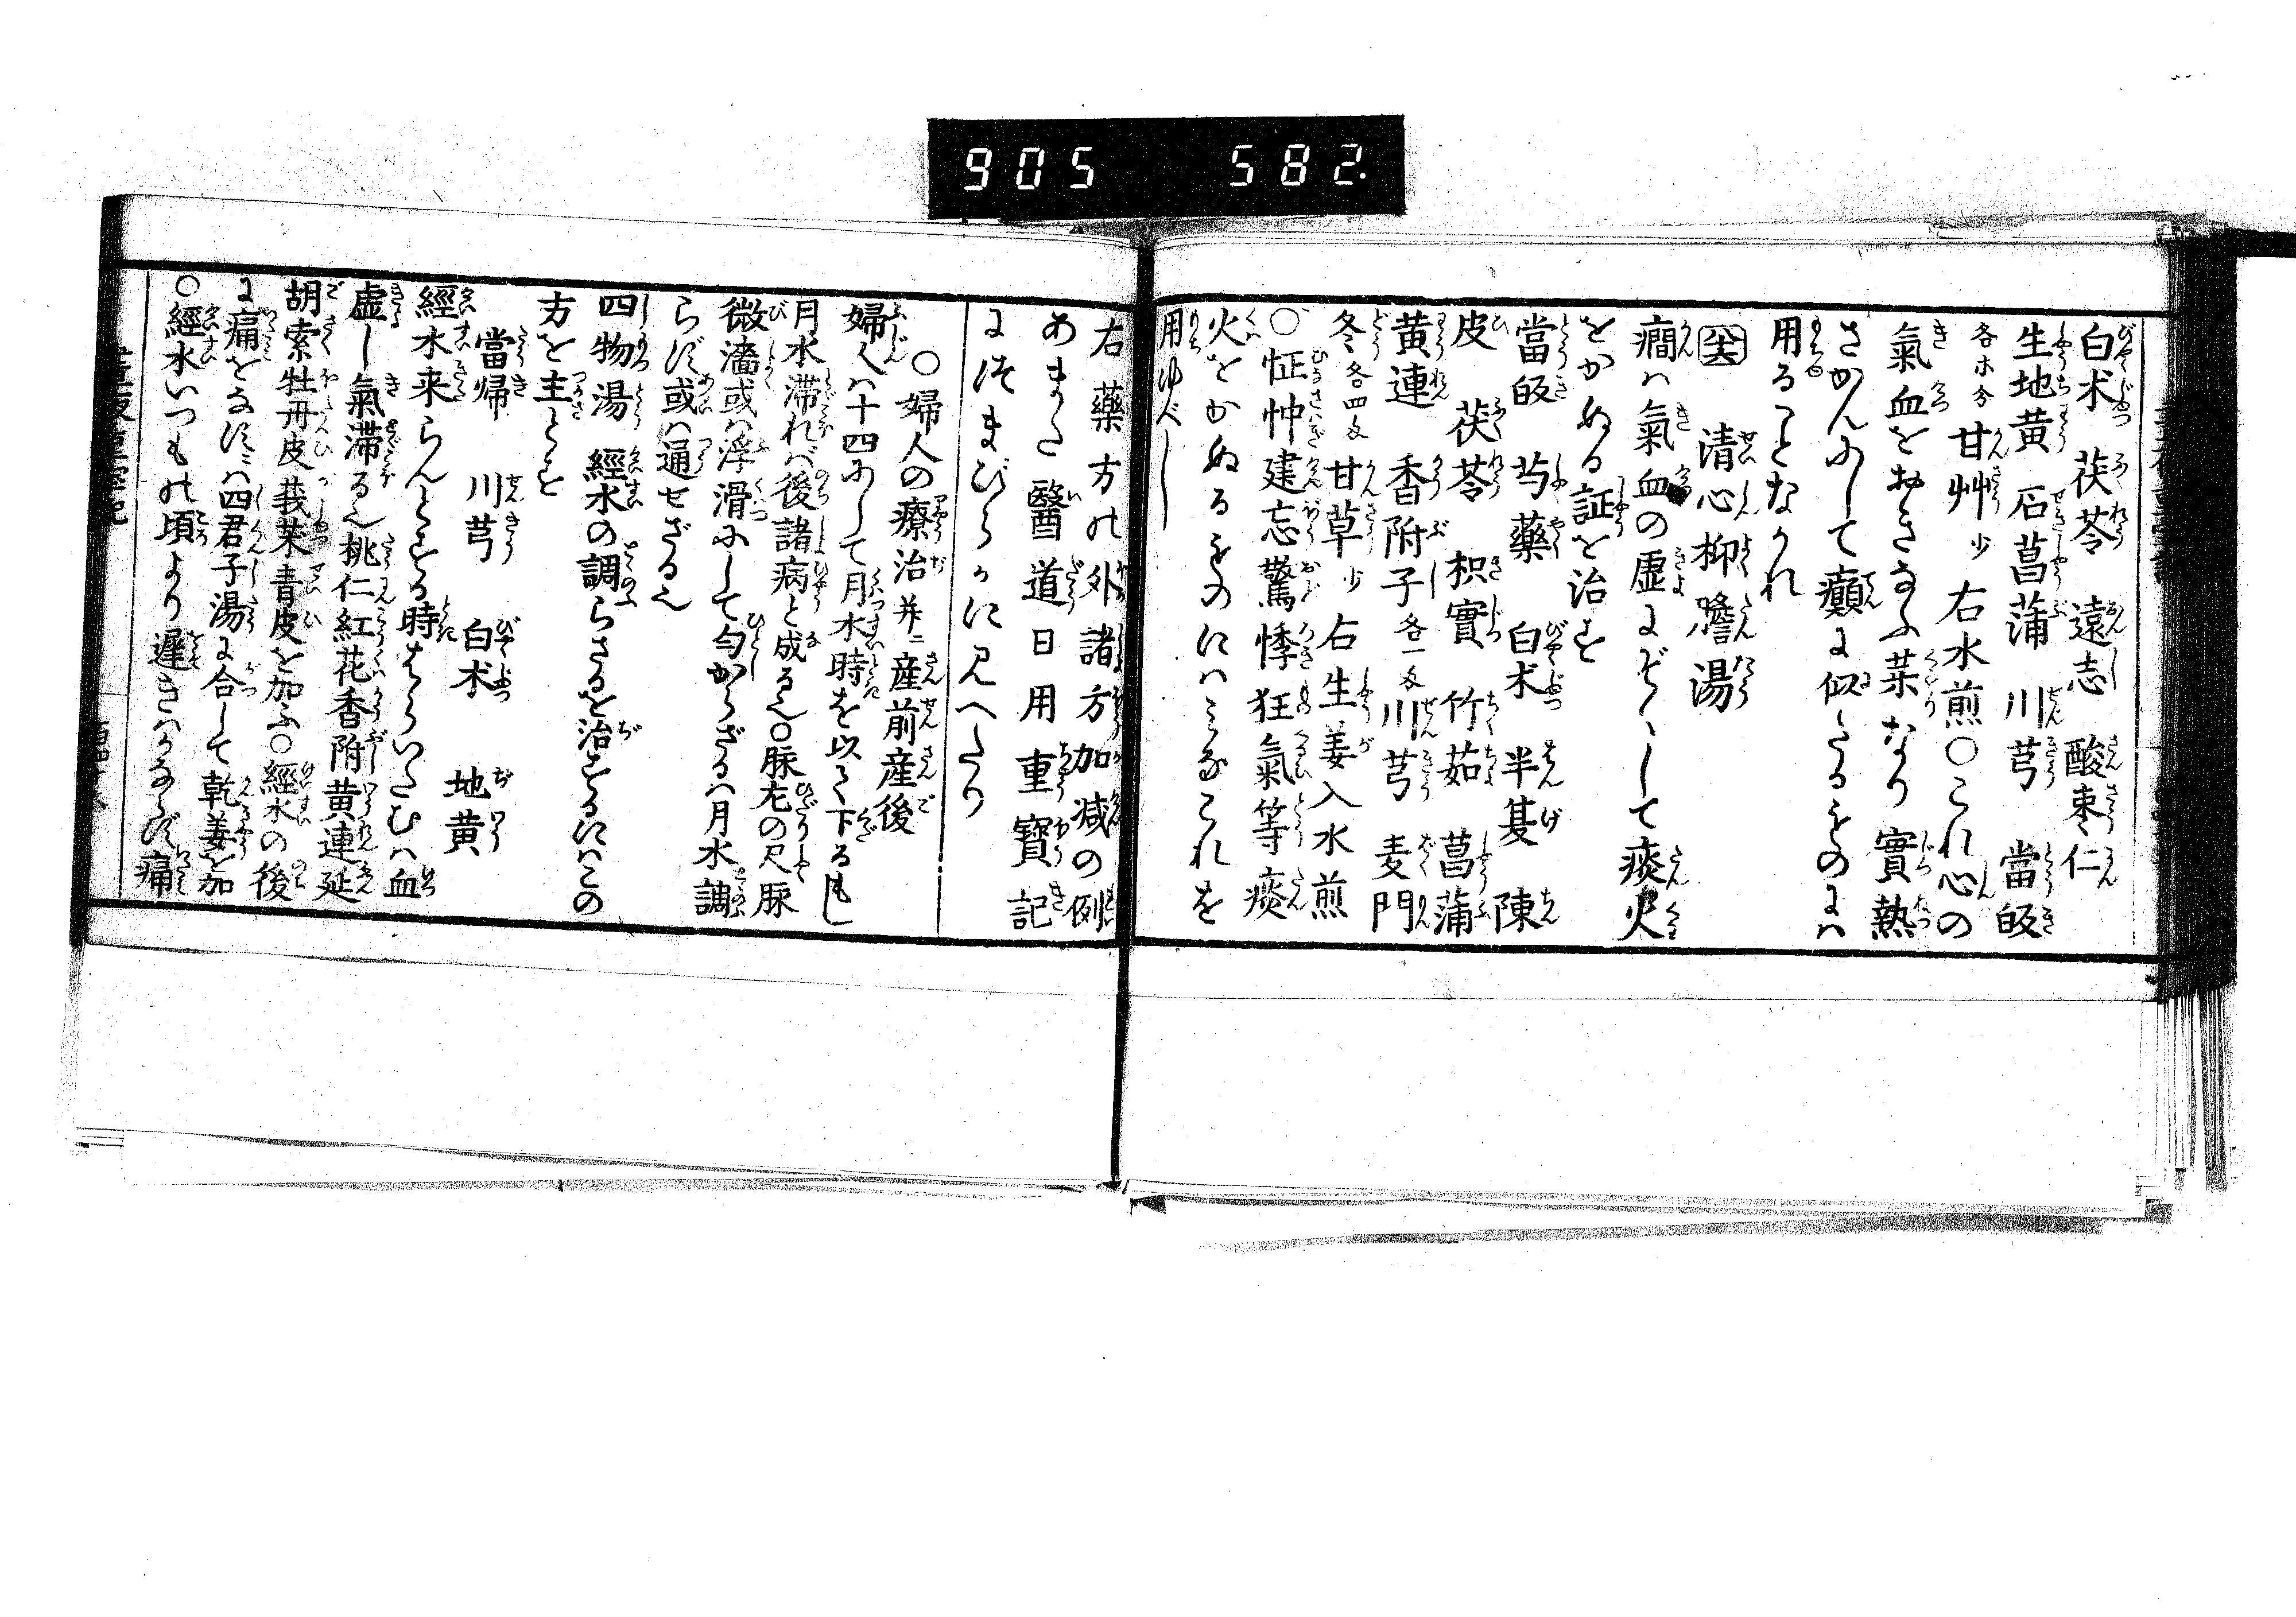 905 582
白朮 茯苓 遠志 酸棗仁
生地黄 石菖蒲 川芎 當皈
各等分 甘艸少 右水煎〇これ心の
氣血をおきなふ薬なり 實熱
さかんにして癲に似たるものには
用ることなかれ
清心抑膽湯
癇は氣血の虚にぞくして痰火
をかぬる証を治す
當皈 芍藥 白朮 半夏 陳
皮 茯苓 枳實 竹茹 菖蒲
黄連 香附子各一匁川芎 麦門
冬各四匁甘草少右生姜入水煎
〇怔忡建忘驚悸狂氣等痰
火をかぬるものにはみなこれを
用ゆべし
右藥方の外諸方加减の例
あまた醫道日用重寶記
につまびらかに見へたり
〇婦人の療治并ニ産前産後
婦人は十四にして月水時を以て下るもし
月水滞れば後諸病と成る也〇脉左の尺脉
微濇或は浮滑にして匀からざるは月水調
らず或は通ぜざる也
四物湯 經水の調らざるを治するにはこの
方を主とす
當帰 川芎 白朮 地黄
經水来らんとする時はらいたむは血
虚し氣滞る也桃仁紅花香附黄連延
胡索牡丹皮莪朮青皮を加ふ〇經水の後
に痛をなすには四君子湯に合して乾姜を加
〇經水いつもの頃より遲きはかならず痛